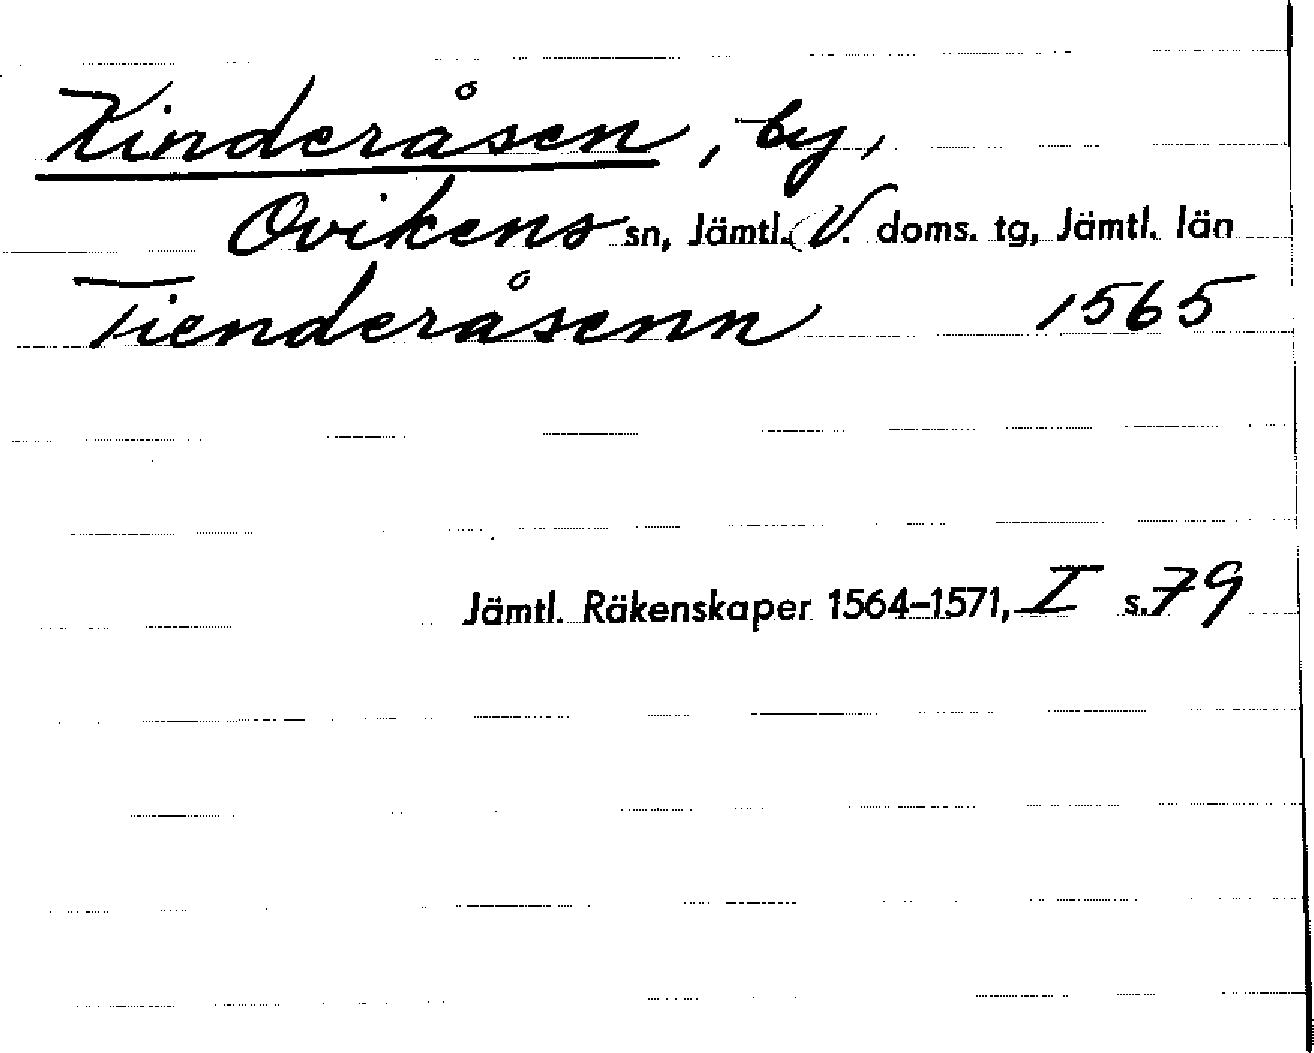 Kinderåsen, by,
Ovikens sn, Jämtl. V. doms. tg, Jämtl. län
Tienderåsenn 1565
Jämtl. Räkenskaper 1564–1571, I s. 79